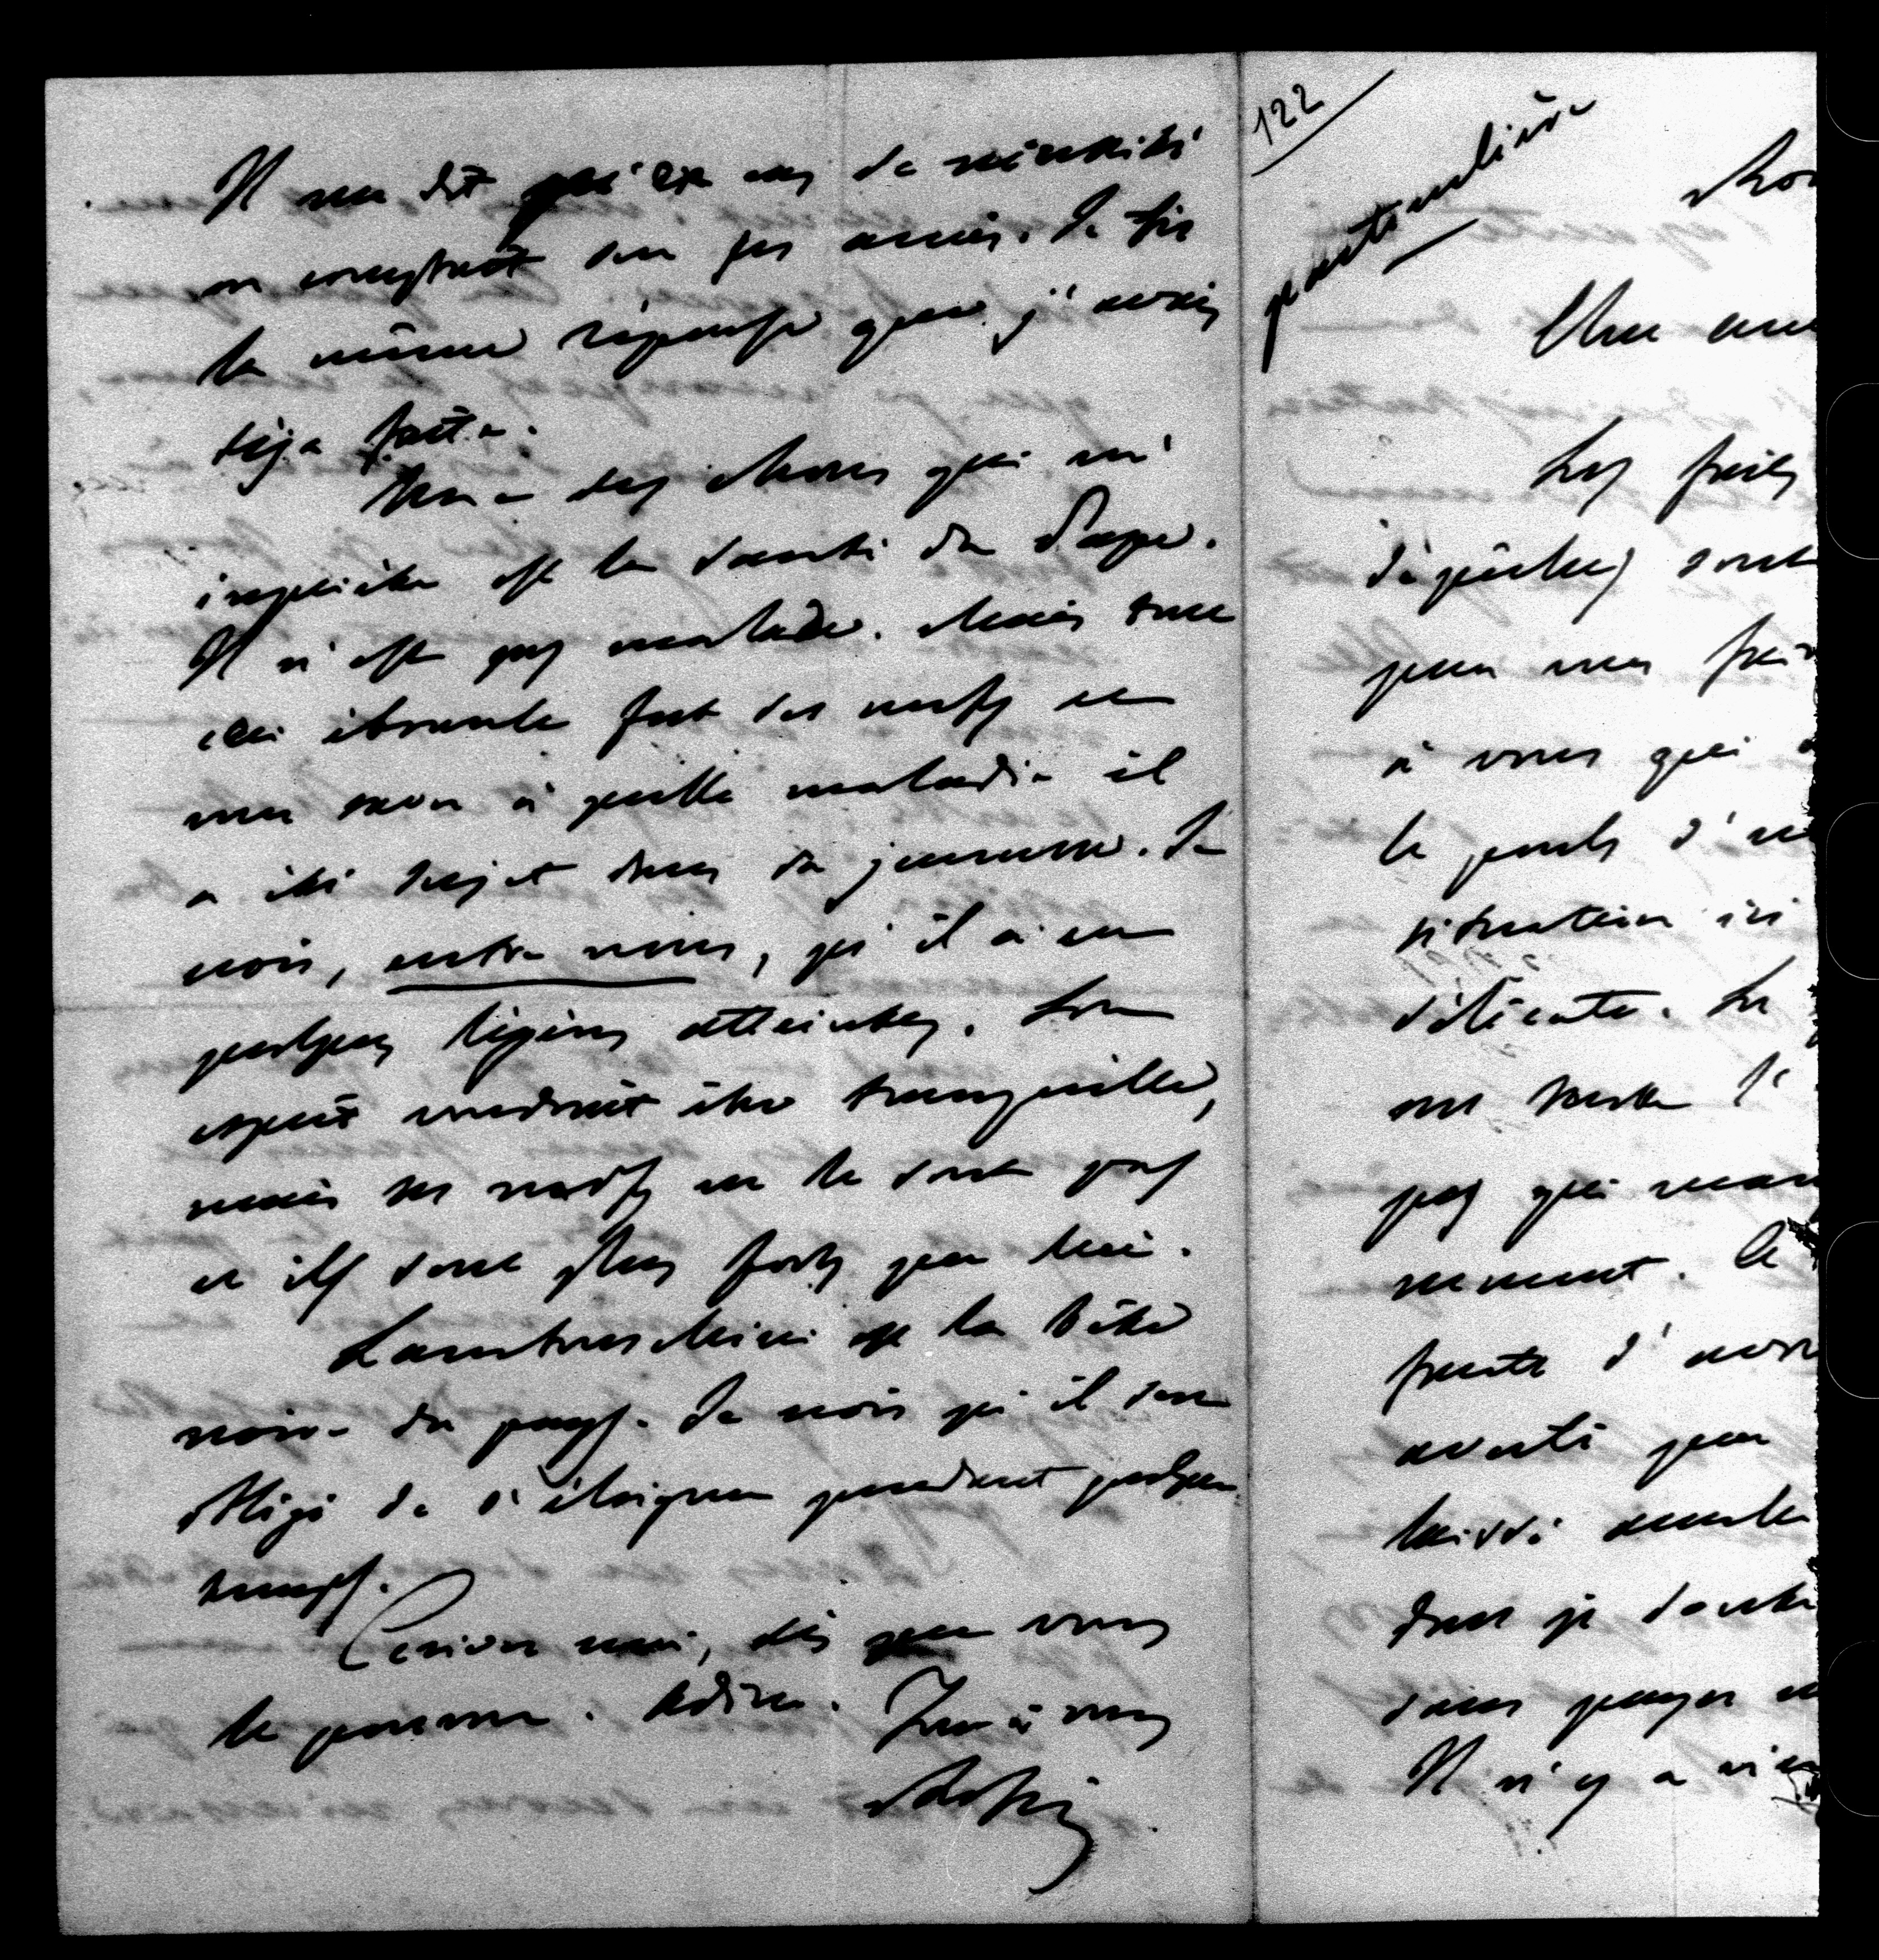 Il me dit qu'en cas de nécessité
on comptait sur ses amis. Je fis
la même réponse que j'avais
déja faite.
Une des choses qui m'
inquiète est la santé du Pape.
Il n'est pas malade. Mais tout
ceci ébranle fort des nerfs
à quelle maladie il
a été sujet dans sa jeunesse. Je
crois, entre nous, qu'il a eu
quelques légères atteintes. Son
esprit voudrait être tranquille,
mais ses nerfs ne le sont pas
et ils sont plus forts que lui.
Lambruschini est la bête
noire du pays. Je crois qu'il sera
obligé de s'éloigner pendant quelque
temps.
Ecrivez moi, dès que vous
le pourrez. Adieu. Tout à vous
Rossi
122
particulière
Mon
Les faits
dépêches sont
pour mes
à vous qui
le poids d'
situation ici
délicate. Le
on toute l'
pas qui
moment. Le
faute d'avoir
averti que
laissé
dont je
sans
Il n'y a rien